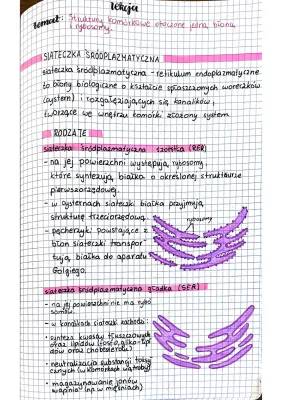 Lekcja
Temat: Struktury komórkowe otoczone jedną błoną
i rybosomy.
SIATECZKA ŚRÓDPLAZMATYCZNA
siateczka śródplazmatyczna - retikulum endoplazmatyczne
to błony biologiczne o kształcie spłaszczonych woreczków
(cystern) i rozgałęziających się kanalików,
tworzące we wnętrzu komórki złożony system
RODZAJE
siateczka śródplazmatyczna szorstka (RER)
- na jej powierzchni występują rybosomy,
które syntezują białka o określonej strukturze
pierwszorzędowej.
- w cysternach siateczki białka przyjmują
strukturę trzeciorzędową.
rybosomy
- pęcherzyki powstające z
błon siateczki transpor
tują białka do aparatu
Golgiego.
siateczka śródplazmatyczna gładka (SER)
- na jej powierzchni nie ma rybo
somów.
- w kanalikach siateczki zachodzi:
- synteza kwasów tłuszczowych
oraz lipidów (fosfo, gliko-lipi
dów oraz cholesterolu)
- neutralizacja substancji toksy
cznych (w komórkach wątroby)
- magazynowanie jonów
wapnia (np. w mięśniach)